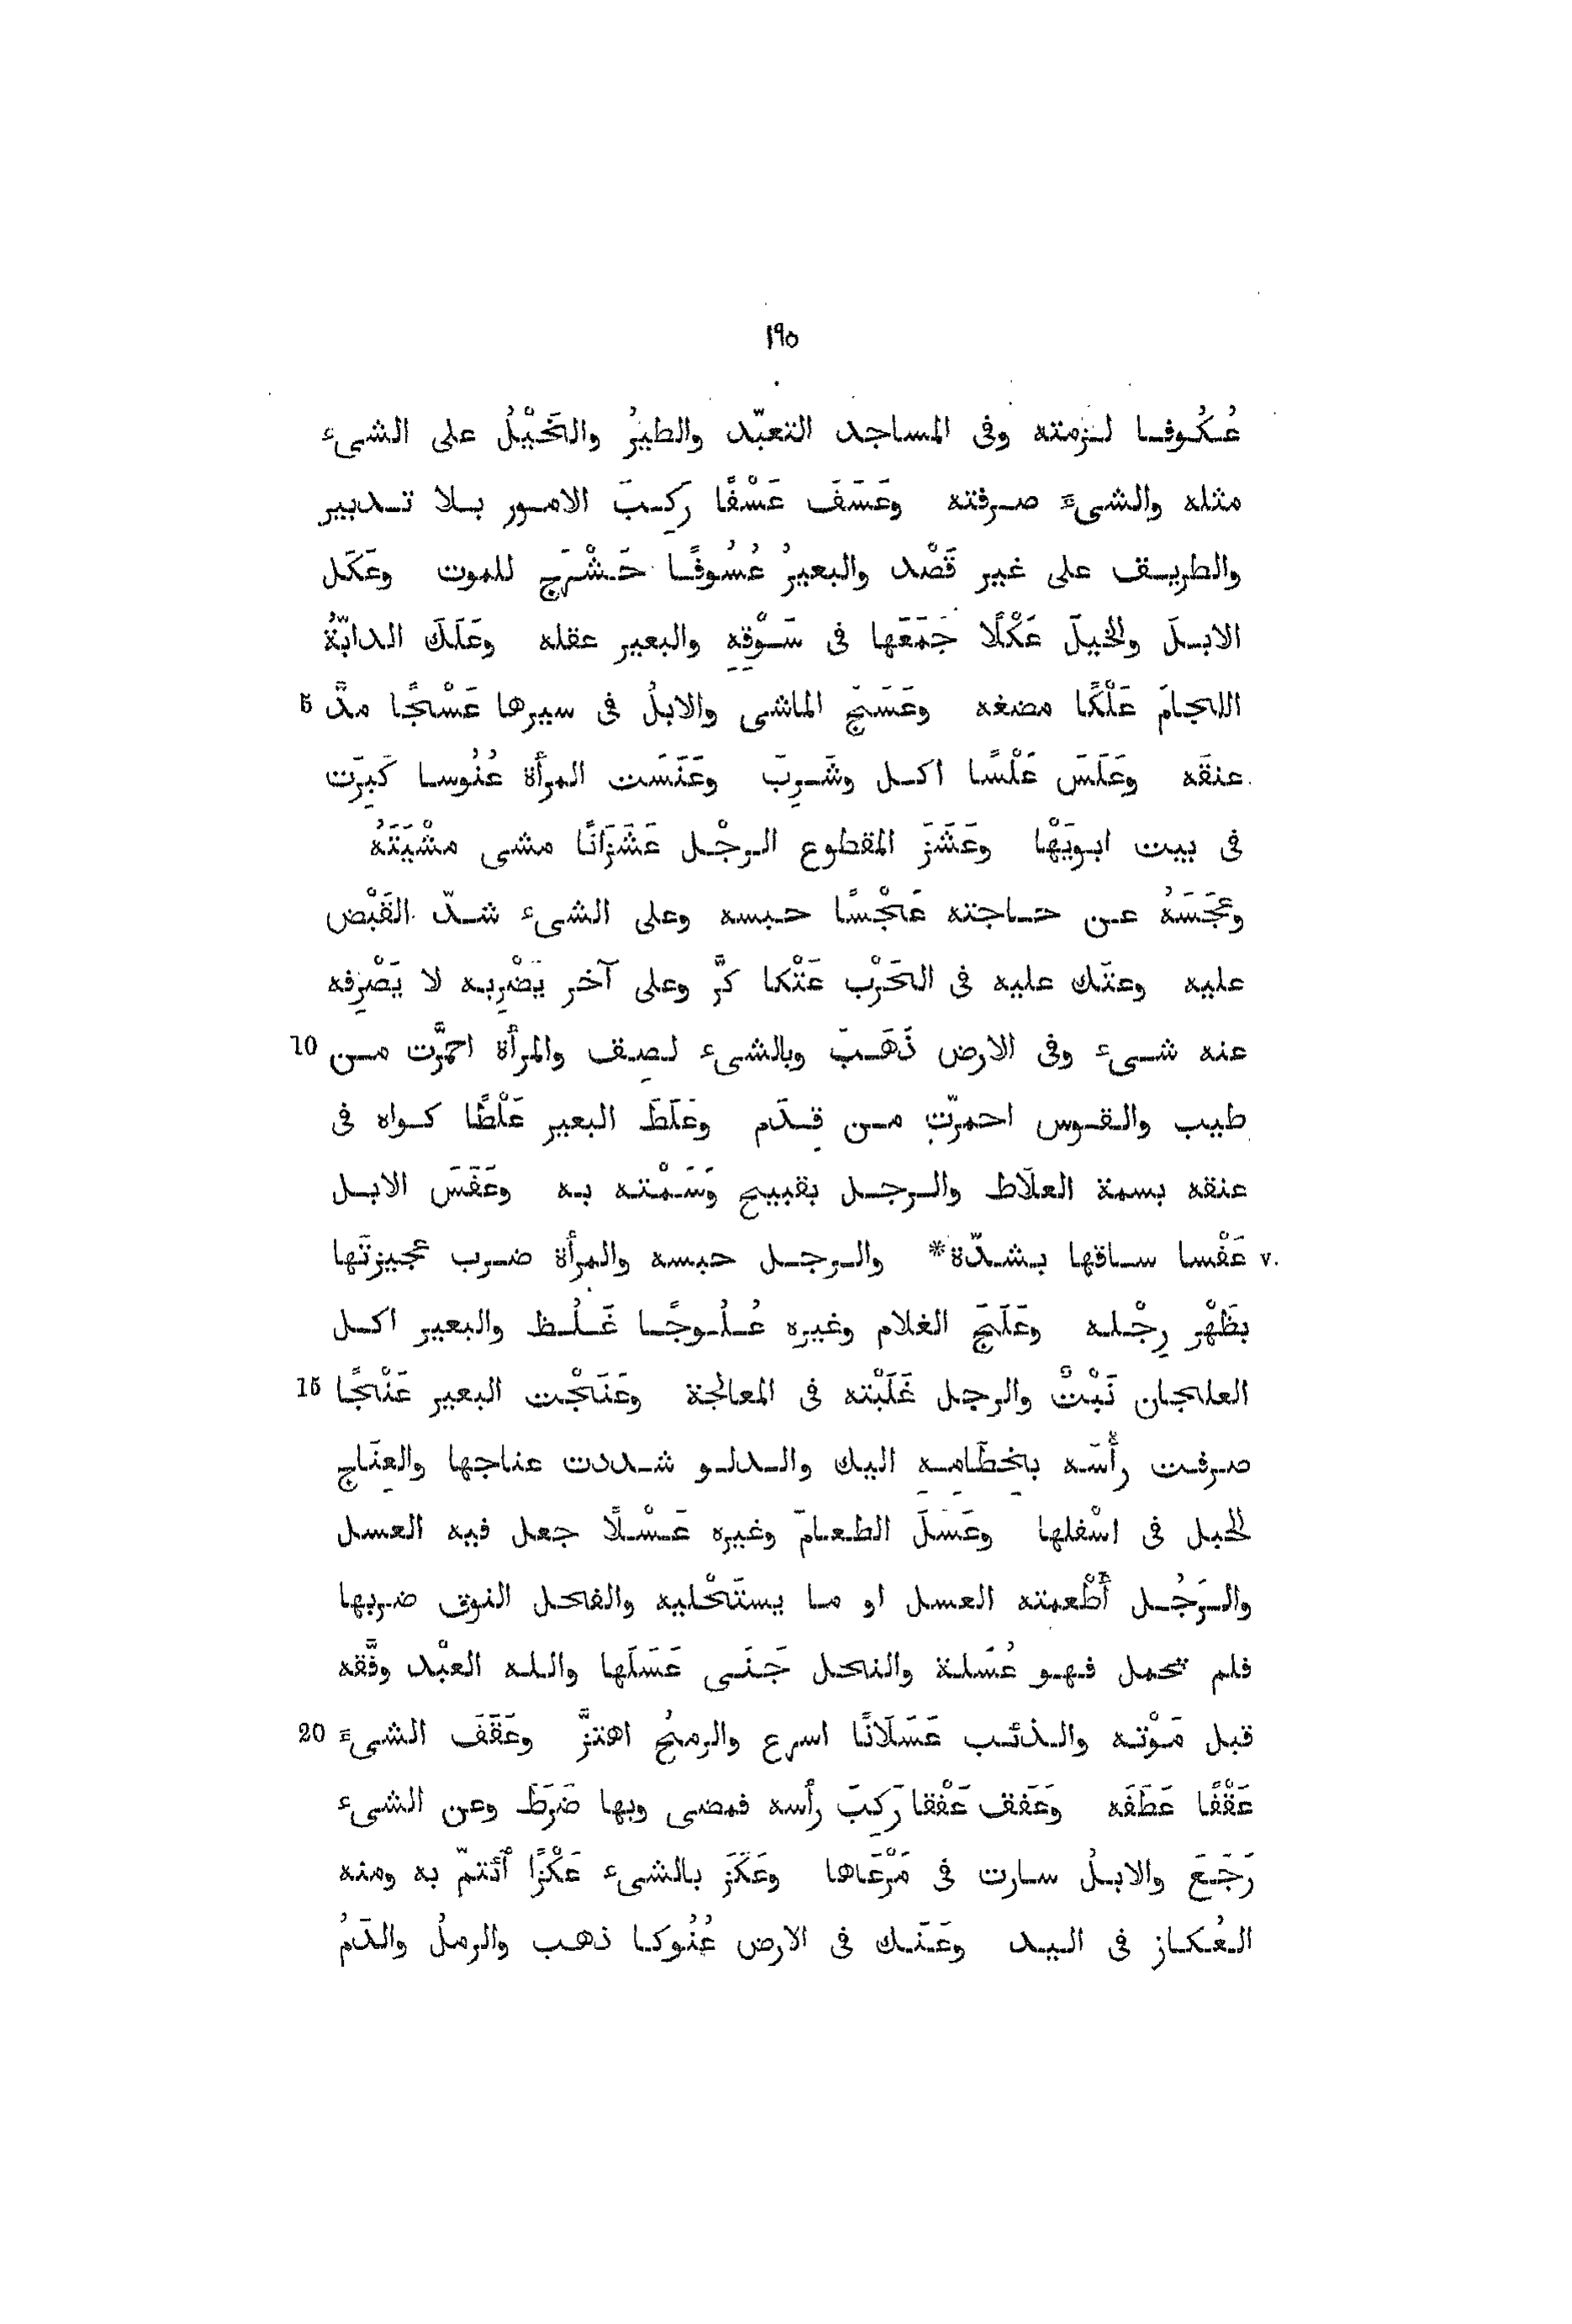 ١٩٥
عُكُوفا لزمته وفى المساجد التعبّد والطيرُ والخَيْلُ على الشىء
مثله والشىءَ صرفته وعَسَفَ عَسْفًا رَكِبَ الامور بلا تدبير
والطريق على غير قَصْد والبعيرُ عُسُوفًا حَشْرَج للموت وعَكَل
الابلَ والخيلَ عَكْلًا جَمَعَها فى سَوْقِهِ والبعير عقله وعَلَكَ الدابّةُ
اللجامَ عَلْكًا مضغه وعَسَجَ الماشى والابلُ فى سيرها عَسْجًا مدَّ 5
عنقَه وعَلَسَ عَلْسًا اكل وشَرِبَ وعَنَسَت المرأة عُنُوسا كَبِرَت
فى بيت ابويَهْا وعَشَزَ المقطوع الرجْل عَشَزَانًا مشى مشْيَتَهُ
وعَجَسَهُ عن حاجته عَجْسًا حبسه وعلى الشىء شدّ القَبْض
عليه وعتَك عليه فى الحَرْب عَتْكا كرَّ وعلى آخر يَضْرِبه لا يَصْرِفه
عنه شىء وفى الارض ذَهَبَ وبالشىء لصِق والمرأة احمرَّت من 10
طيب والقوس احمرّتِ من قِدَم وعَلَطَ البعير عَلْطًا كواه فى
عنقه بسمة العلَاط والرجل بقبيح وَسَمْته به وعَفَسَ الابل
v. عَفْسا ساقها بشدّة* والرجل حبسه والمرأة ضرب عجيزتَها
بظَهْر رِجْله وعَلَجَ الغلام وغيره عُلُوجًا غَلُظ والبعير اكل
العلجان نَبْتٌ والرجل غَلَبْته فى المعالجة وعَنَجْت البعير عَنْجًا 15
صرفت رأْسَه بِخطَامِهِ اليك والدلو شددت عناجها والعِنَاج
لحبل فى اسْفلها وعَسَلَ الطعامَ وغيره عَسْلًا جعل فيه العسل
والرَجُل أَطْعمته العسل او ما يستَحْليه والفحل النوق ضربها
فلم تحمل فهو عُسَلة والنحل جَنَى عَسَلَها والله العبْد وفَّقه
قبل مَوْته والذئب عَسَلَانًا اسرع والرمحُ اهتزَّ وعَقَفَ الشىءَ 20
عَقْفًا عَطَفَه وعَفَق عَفْقا رَكِبَ رأسه فمضى وبها ضَرَطَ وعن الشىء
رَجَعَ والابلُ سارت فى مَرْعَاها وعَكَزَ بالشىء عَكْزًا ٱئتمّ به ومنه
العُكاز فى اليد وعَنَك فى الارض عُنُوكا ذهب والرملُ والدَمُ